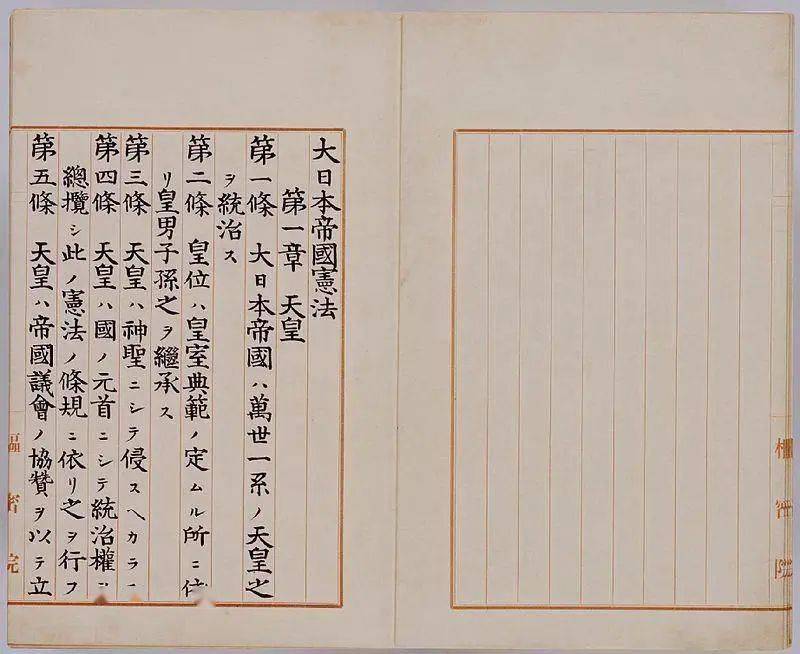 大日本帝國憲法
第一章 天皇
第一條 大日本帝國ハ萬世一系ノ天皇之
ヲ統治ス
第二條 皇位ハ皇室典範ノ定ムル所ニ
リ皇男子孫之ヲ繼承ス
第三條 天皇ハ神聖ニシテ侵スヘカラ
第四條 天皇ハ國ノ元首ニシテ統治權
總攬シ此ノ憲法ノ條規ニ依リ之ヲ行フ
第五條 天皇ハ帝國議會ノ協贊ヲ以テ立